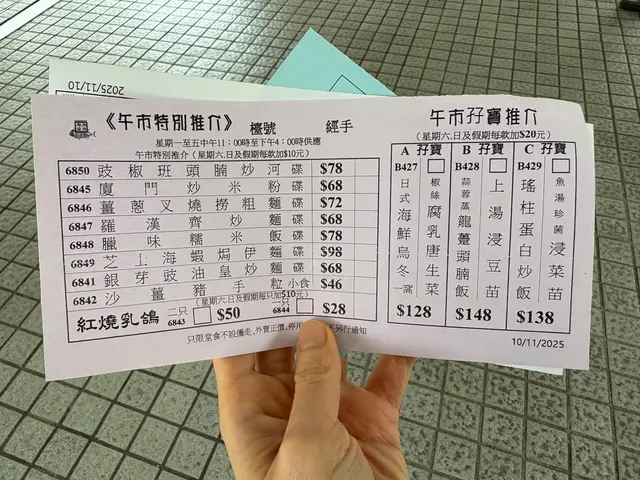 2025/11/10
《午市特別推介》 檯號 經手
星期一至五中午11：00時至下午4：00時供應
午市特別推介（星期六.日及假期每款加$10元）
6850 豉椒班頭腩炒河 碟 $78
6845 廈門炒米粉 碟 $68
6846 薑蔥叉燒撈粗麵 碟 $72
6847 羅漢齊炒麵 碟 $68
6848 臘味糯米飯 碟 $78
6849 芝士海蝦焗伊麵 碟 $98
6841 銀芽豉油皇炒麵 碟 $68
6842 沙薑豬手粒 小食 $46
（星期六.日及假期每只加$10元）
紅燒乳鴿 二只 6843 $50 一只 6844 $28
只限堂食不設攜走,外賣正價,停用
另行通知
午市孖寶推介
(星期六.日及假期每款加$20元)
A 孖寶
B427
日式海鮮烏冬 一窩
椒絲腐乳唐生菜
$128
B 孖寶
B428
蒜蓉蒸龍躉頭腩飯
上湯浸豆苗
$148
C 孖寶
B429
瑤柱蛋白炒飯
魚湯珍菌浸菜苗
$138
10/11/2025